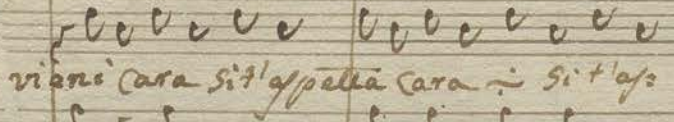 viani cara si t'aspetta cara ÷ si t'as=